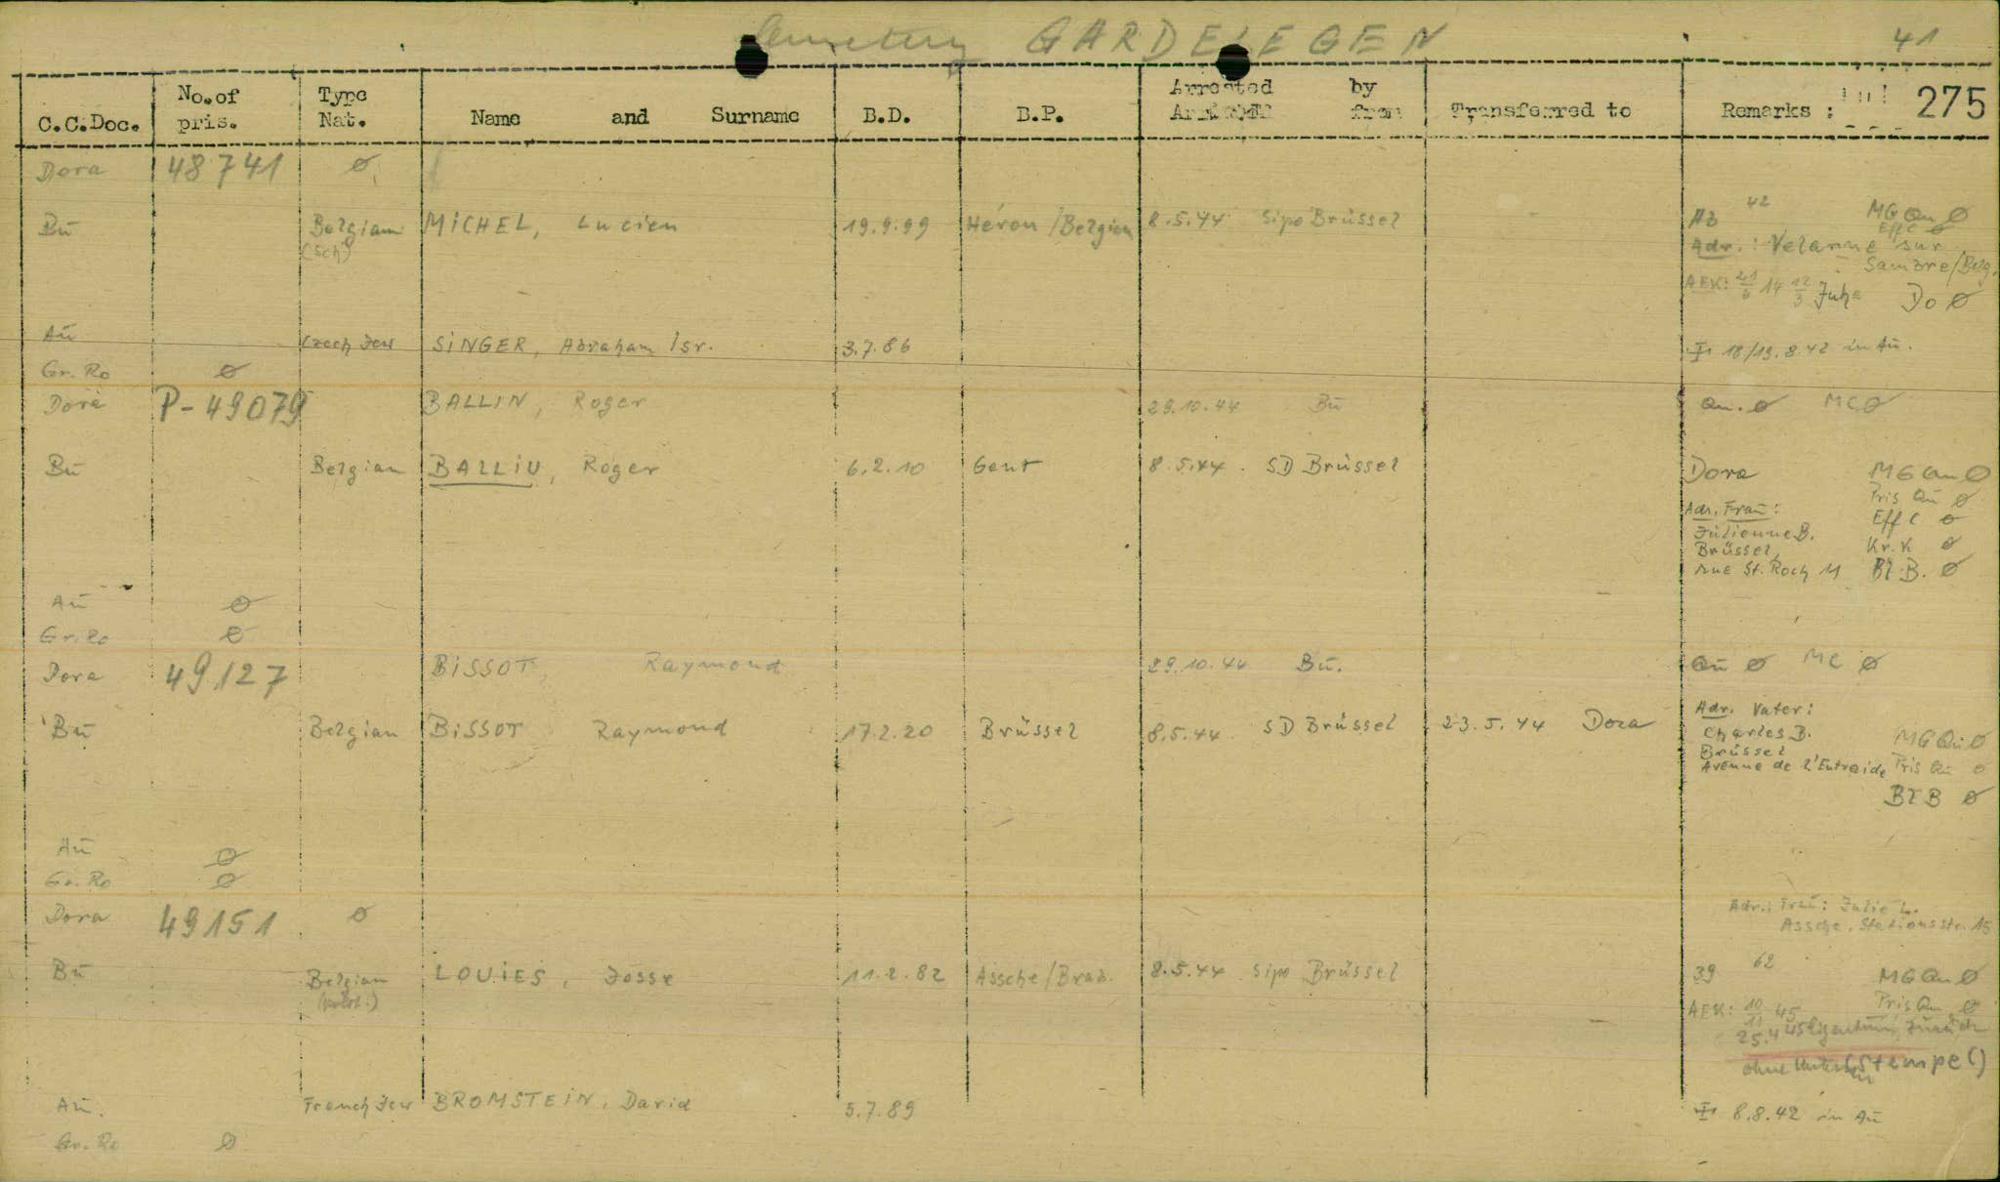 Cemetery GARDELEGEN 41
C.C.Doc. No.of pris. Type Nat. Name and Surname B.D. B.P. Arrested by from Transferred to Remarks : 275
Dora 48741 ø
Bu Belgian (Sch) MiCHEL, Lucien 19.9.99 Héron /Belgien 8.5.44 Sipo Brüssel 42 MG Qu ø
Eff C ø
Adr.: Velanne sur
Sambre/Belg.
AEK: 21/6 14 12/3 Do ø
Au Czech Jew SiNGER, Abraham Isr. 3.7.86 18/19.8.42 in Au.
Gr. Ro ø
Dora P-49079 BALLIN, Roger 29.10.44 Bu Qu. ø MC ø
Bu Belgian BALLiU, Roger 6.2.10 Gent 8.5.44. SD Brüssel Dora MG Qu ø
Pris Qu ø
Adr. Frau: Eff C ø
Julienne B.
Brüssel, Kr. K ø
rue St. Roch 11 Bl. B. ø
Au ø
Gr. Ro ø
Dora 49127 BiSSOT, Raymond 29.10.44 Bu. Qu ø MC ø
Bu Belgian BiSSOT Raymond 17.2.20 Brüssel 8.5.44. SD Brüssel 23.5.44 Dora Adr. Vater:
Charles B. MG Qu ø
Brüssel
Avenue de l'Entraide Pris Qu ø
Bl B ø
Au ø
Gr. Ro ø
Dora 49151 ø Adr.: Frau: Julie L.
Assche, Stationsstr. 15
Bu Belgian LOUiES, Josse 11.2.82 Assche/Brab. 8.5.44 Sipo Brüssel 39 62 MG Qu ø
AEK: 10/11 45 Pris Qu ø
25.4.45 Eigentum zurück
ohne (Stempel)
Au. French Jew BROMSTEiN, David 5.7.89 8.8.42 in Au
Gr. Ro ø